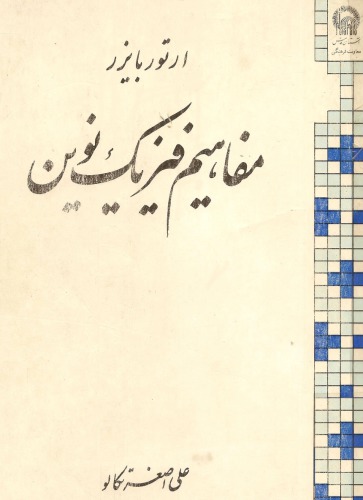 ارتور بایزر
مفاهیم فیزیک نوین
معاونت فرهنگی
علی اصغر تکالو